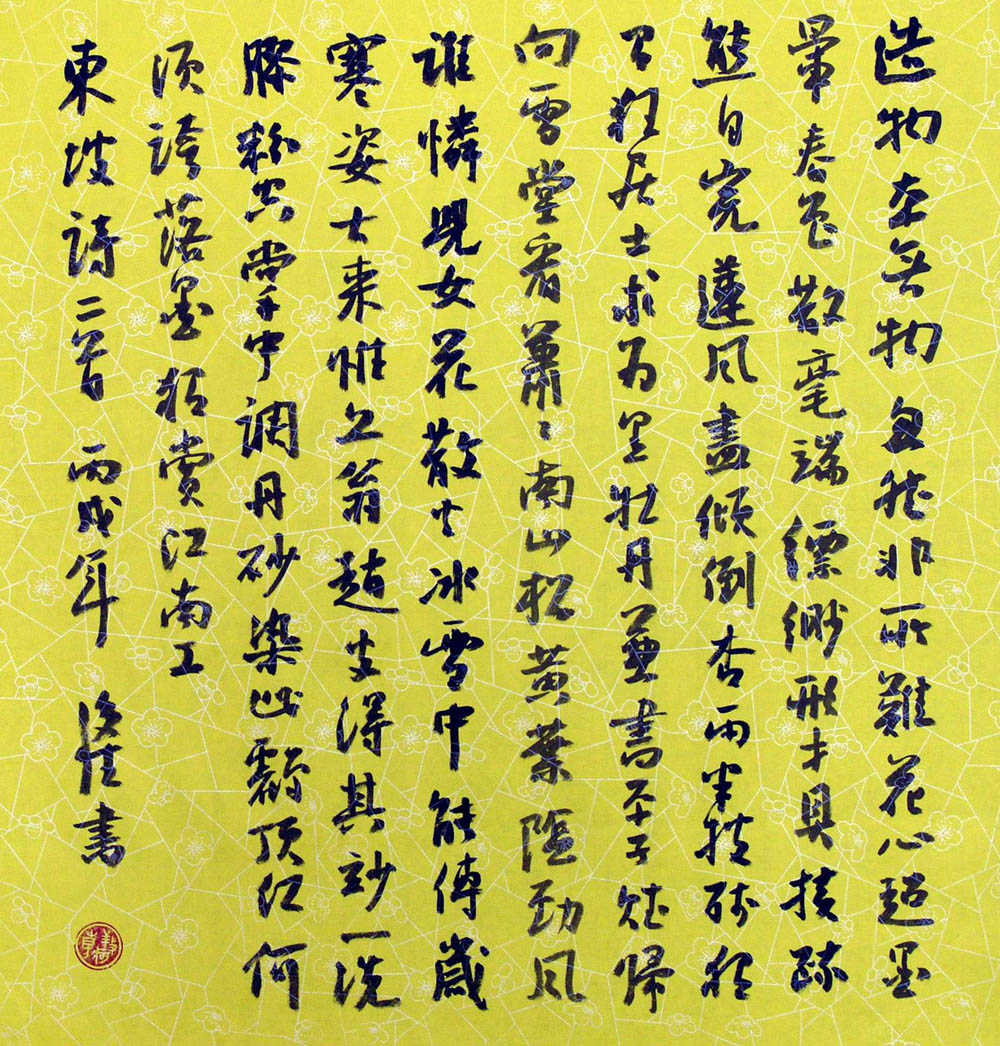 造物本无物忽然非所難花心超墨
暈春色散毫端縹緲形才具扶疏
態自完蓮風盡傾倒杏雨半披殘獨
有狂居士求为黑牡丹兼書平子賦歸
向雪堂看蕭〻南山松黃葉隕勁風
誰憐兒女花散火冰雪中能傳歲
寒姿古來惟丘翁趙叟得其妙一洗
膠粉空掌中調丹砂染此鶴頂紅何
須誇落墨獨賞江南工
東坡詩二首 丙戌年 書